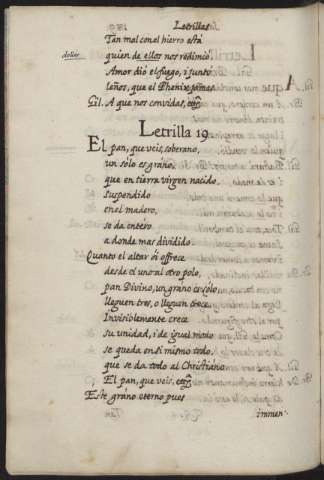 Letrillas
Tan mal con el hierro está
quien de ellos nos redimio.
Amor dió el fuego, i juntó
leños, que el Phenix
Gil. A que nos convidas, etc.
Letrilla 19
El pan, que veis, soberano,
un solo es grano,
que en tierra virgen nacido
suspendido
en el madero,
se da entero
a donde mas dividido.
Quanto el altar oi offrece
desde el uno al otro polo,
pan Divino, un grano es solo,
lleguen tres, o lleguen trece.
Invisiblemente crece
su unidad, i de igual modo
se queda en si mismo todo,
que se da todo al Christiano
El pan, que veis, etc.
Este grano eterno pues
immen-